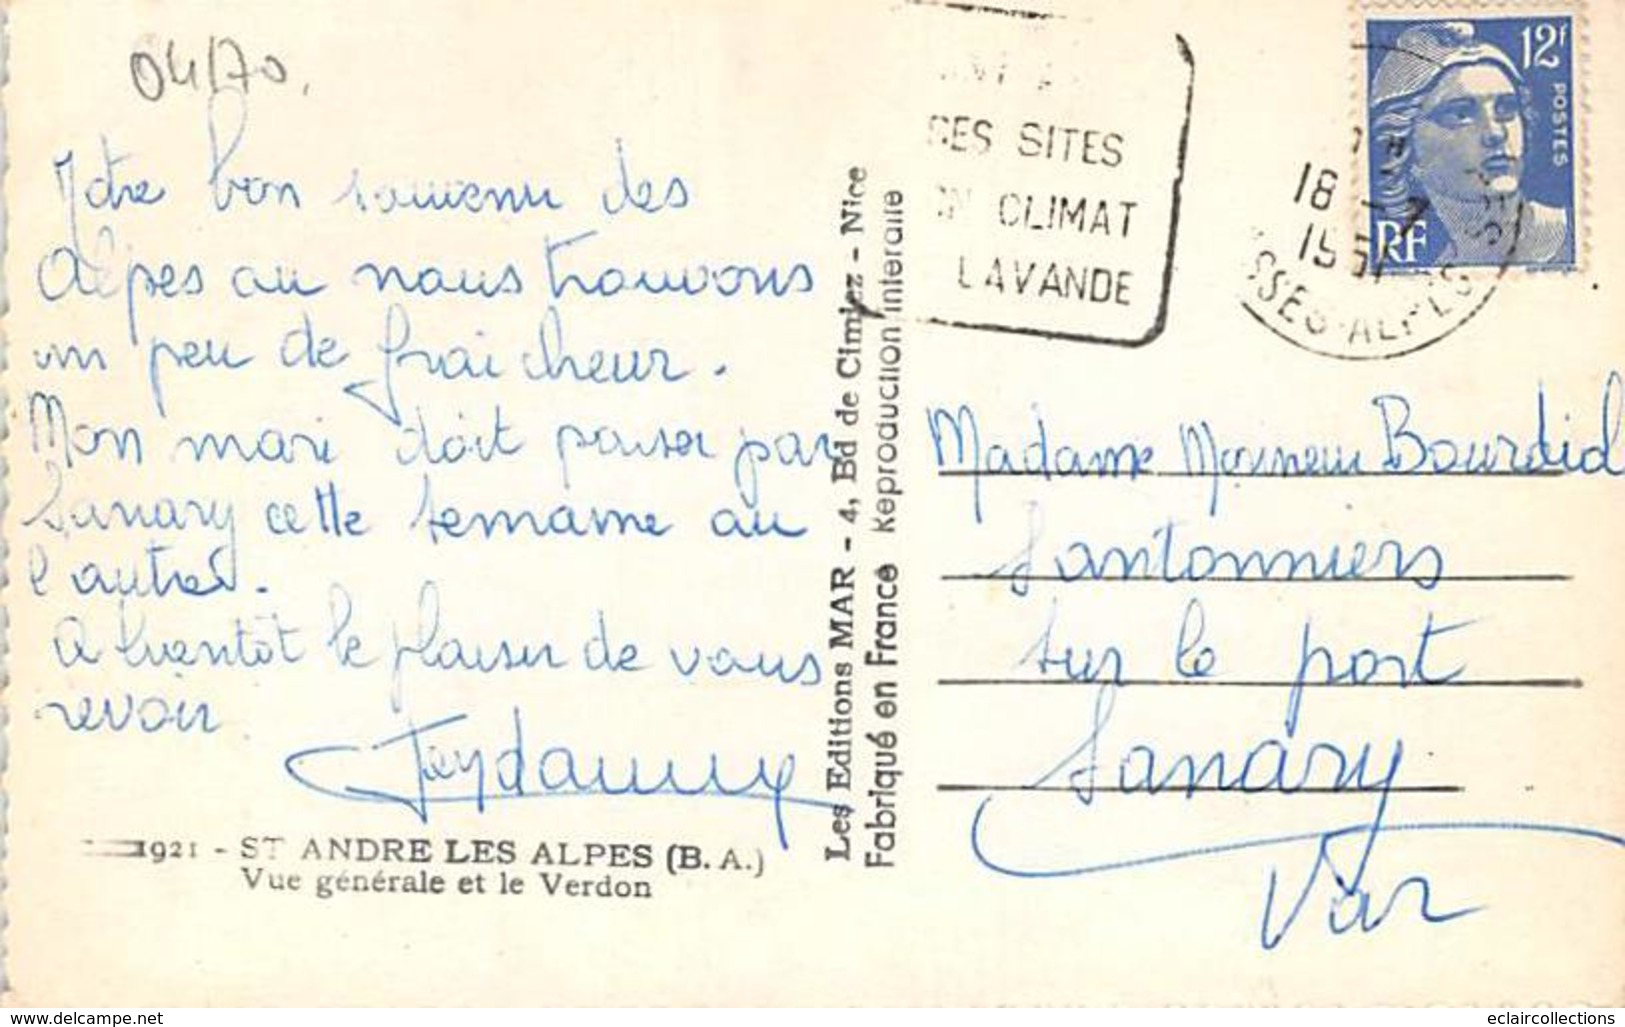 04/70.
Notre bon souvenir des
Alpes ou nous trouvons
un peu de fraicheur.
Mon mari doit passer par
Sanary cette semaine ou
l'autre.
A bientôt le plaisir de vous
revoir
1921 - ST ANDRE LES ALPES (B. A.)
Vue générale et le Verdon
Les Editions MAR - 4, Bd de Cimiez - Nice
Fabriqué en France Reproduction interdite
SES SITES
ON CLIMAT
LAVANDE
18 - 7
1951
SSES-ALPES
12f
POSTES
RF
Madame Monsieur Bourdid
Santonniers
sur le port
Sanary
Var
www.delcampe.net
eclaircollections